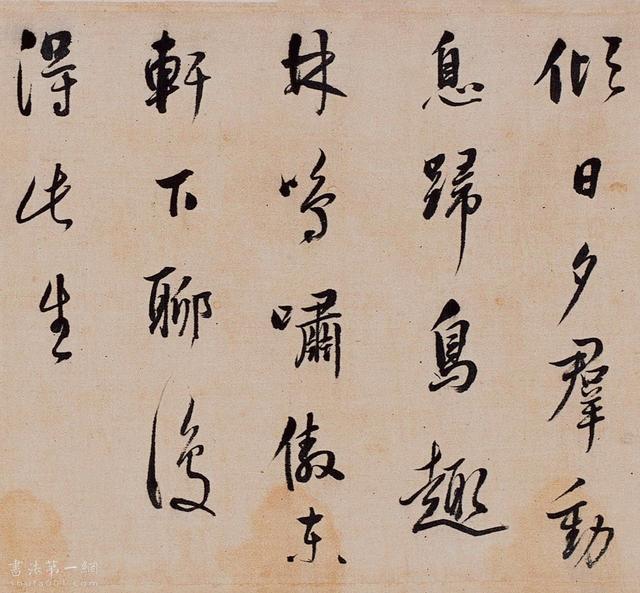 傾日夕羣動
息歸鳥趣
林鳴嘯傲東
軒下聊復
得此生
書法第一網
shufa001.com